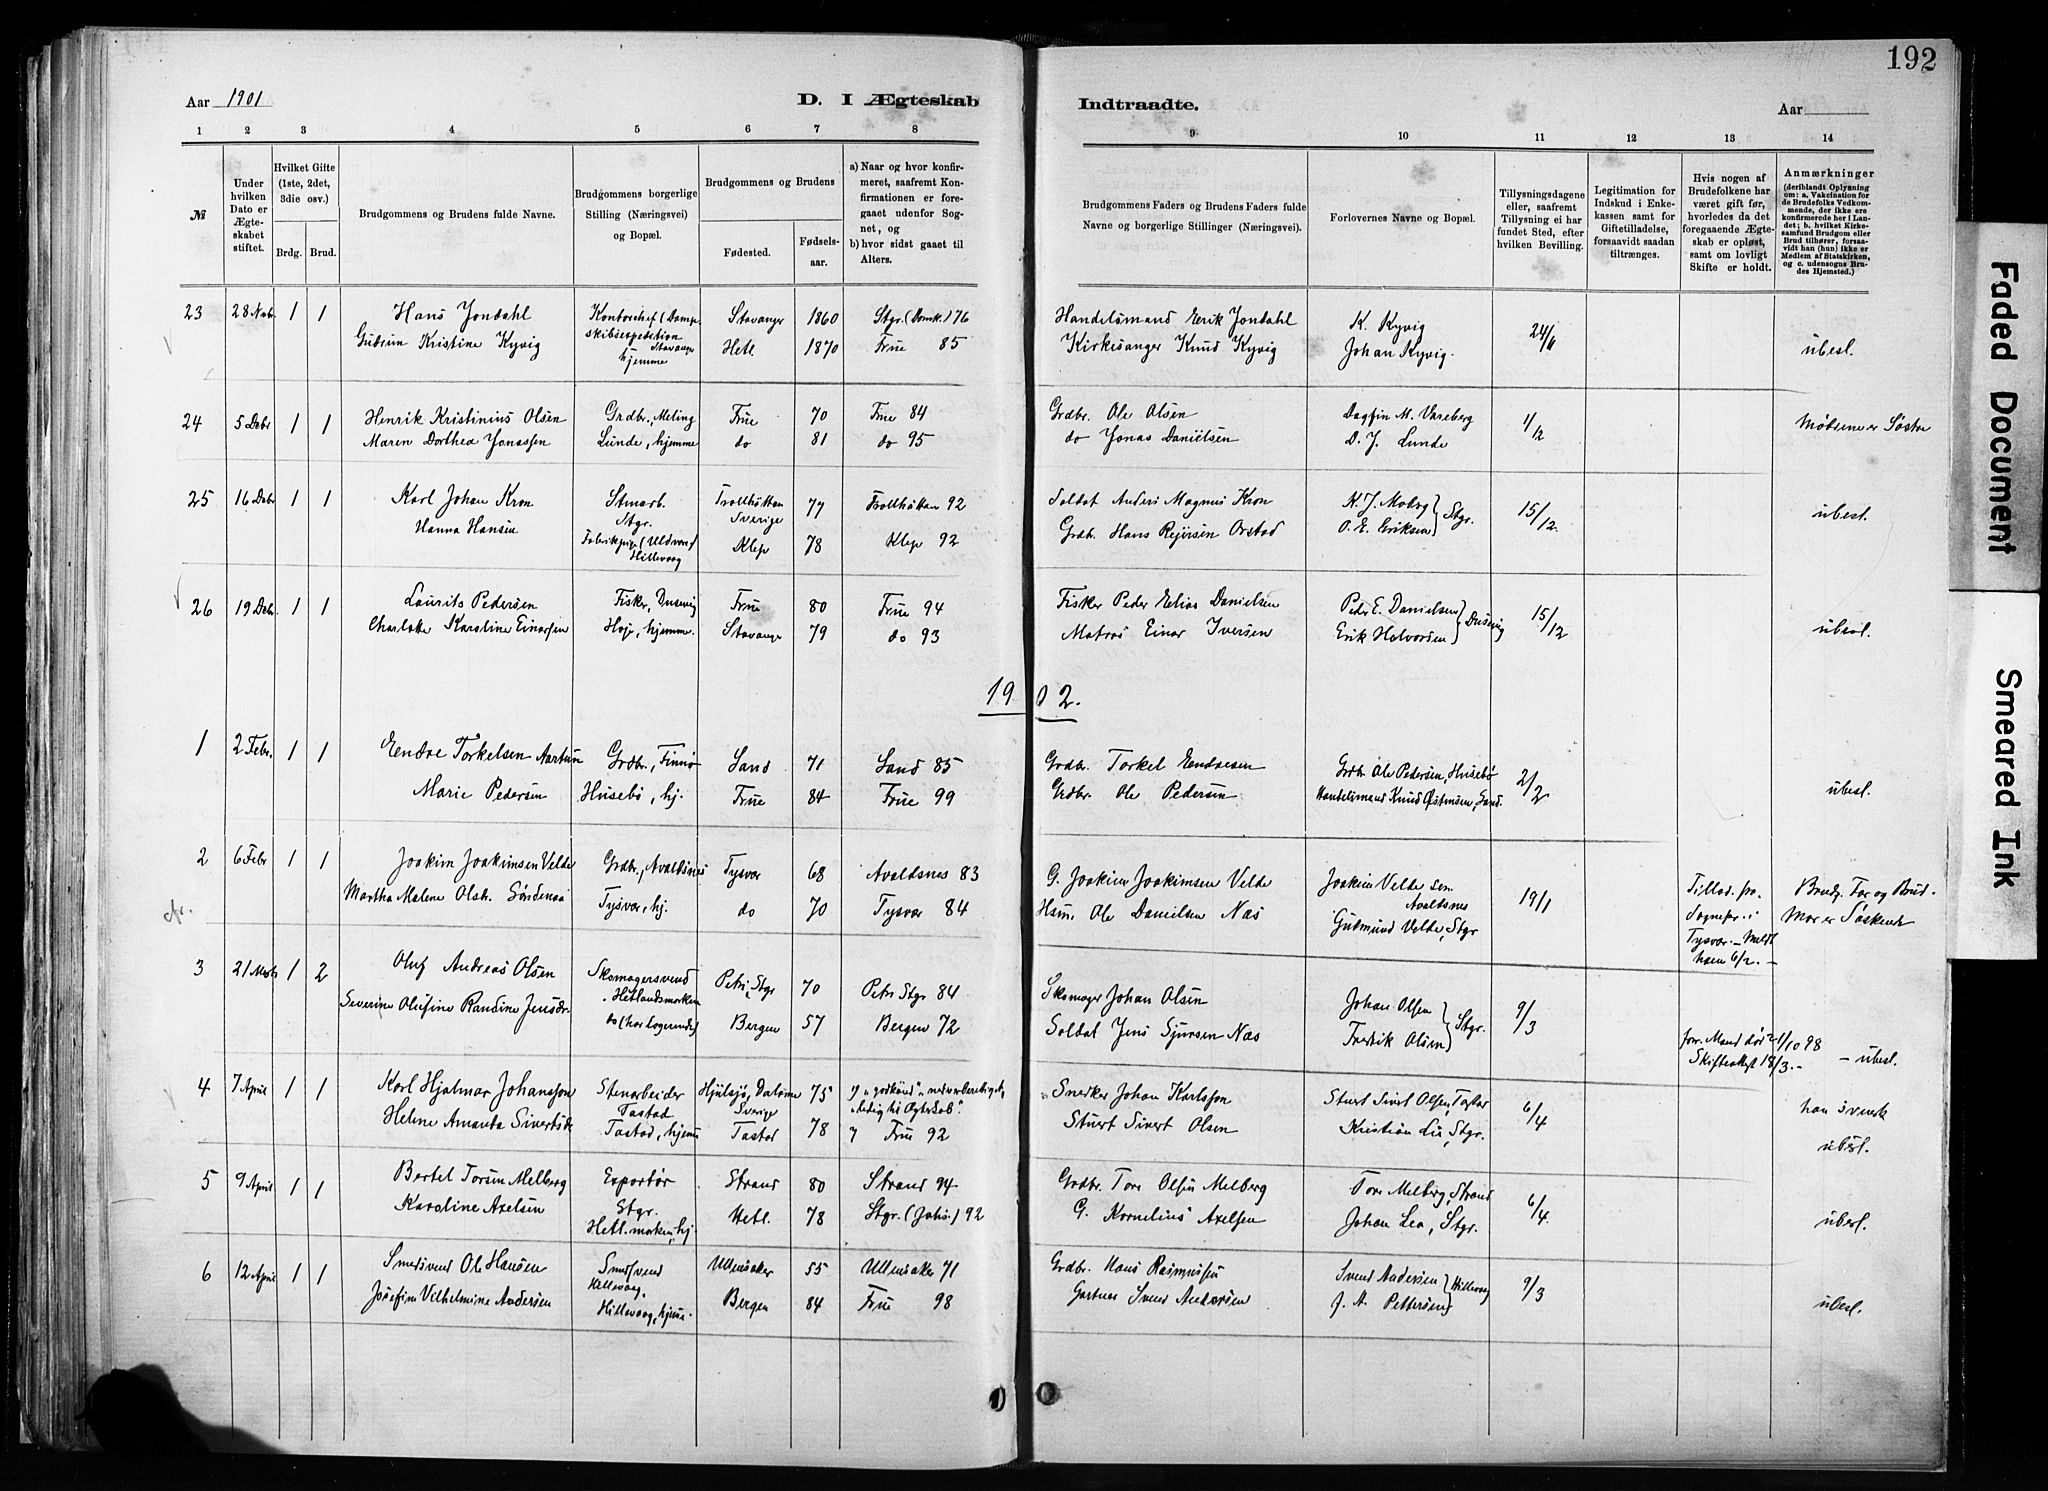 192
Aar 1901
D. I Ægteskab Indtraadte.
Aar
1 2 3 4 5 6 7 8 9 10 11 12 13 14
№
Under hvilken Dato er Ægteskabet stiftet.
Hvilket Gifte (1ste, 2det, 3die osv.)
Brdg. Brud.
Brudgommens og Brudens fulde Navne.
Brudgommens borgerlige Stilling (Næringsvei) og Bopæl.
Brudgommens og Brudens
Fødested. Fødselsaar.
a) Naar og hvor konfirmeret, saafremt Konfirmationen er foregaaet udenfor Sognet, og
b) hvor sidst gaaet til Alters.
Brudgommens Faders og Brudens Faders fulde Navne og borgerlige Stillinger (Næringsvei).
Forlovernes Navne og Bopæl.
Tillysningsdagene eller, saafremt Tillysning ei har fundet Sted, efter hvilken Bevilling.
Legitimation for Indskud i Enkekassen samt for Giftetilladelse, forsaavidt saadan tiltrænges.
Hvis nogen af Brudefolkene har været gift før, hvorledes da det foregaaende Ægteskab er opløst, samt om lovligt Skifte er holdt.
Anmærkninger (deriblandt Oplysning om: a. Vakcination for de Brudefolks Vedkommende, der ikke ere konfirmerede her i Landet; b. hvilket Kirkesamfund Brudgom eller Brud tilhører, forsaavidt han (hun) ikke er Medlem af Statskirken, og c. udensogns Brudes Hjemsted.)
23 28 Nobr. 1 1 Hans Jondahl Kontorchef (Dampskibsexpedition Stavanger Stavanger 1860 Stgr. (Domk.) 76 Handelsmand Erik Jondahl K. Kyvig 24/11
Gudrun Kristine Kyvig hjemme Hetl. 1870 Frue 85 Kirkesanger Knud Kyvig Johan Kyvig. ubesl.
24 5 Debr 1 1 Henrik Kristinius Olsen Grdbr., Meling Frue 70 Frue 84 Grdbr. Ole Olsen Dagfin M. Vareberg 1/12 Mødrene er Søstre
Maren Dorthea Jonassen Lunde, hjemme do 81 do 95 do Jonas Danielsen D. J. Lunde
25 16 Debr 1 1 Karl Johan Kron Stenarb. Stgr. Trollhättan Sverige 77 Trollhättan 92 Soldat Anders Magnus Kron K. J. Moberg 15/12 ubesl.
Hanna Hansen Hillevaag Klep 78 Klep 92 Grdbr. Hans Reiersen Orstad O. E. Eriksen Stgr.
26 19 Debr. 1 1 Laurits Pedersen Fisker, Dusevig Frue 80 Frue 94 Fisker Peder Elias Danielsen Peder E. Danielsen 15/12
Charlotte Karoline Einarsen Hoje, hjemme. Stavanger 79 do 93 Matros Einar Iversen Erik Halvorsen Dusevig ubesl.
1902.
1 2 Febr. 1 1 Endre Torkelsen Aartun Grdbr., Finnø Sand 71 Sand 85 Grdbr. Torkel Endresen Grdbr Ole Pedersen, Husebø 2/2
Marie Pedersen Husebø, hj. Frue 84 Frue 99 Grdbr. Ole Pedersen Handelsmand Knud Østensen, Sand. ubesl.
2 6 Febr 1 1 Joakim Joakimsen Velde Grdbr., Avaldsnes Tysvær 68 Avaldsnes 83 G. Joakim Joakimsen Velde Joakim Velde sen. Avaldsnes 19/1 Tillad. fra Sognepr. i Tysvær. – Meldt ham 6/2. – Brudg. Far og Brud. Mor er Søskende
Martha Malene Olsdr. Søndenaa Tysvær, hj. do 70 Tysvær 84 Hsm. Ole Danielsen Næs Gudmund Velde, Stgr
3 21 Marts 1 2 Oluf Andreas Olsen Skomagersvend Hetlandsmarken Petri, Stgr 70 Petri Stgr 84 Skomager Johan Olsen Johan Olsen 9/3
Severine Olufine Randine Jensdr. do (har Logerende) Bergen 57 Bergen 72 Soldat Jens Sjursen Næs Fredrik Olsen Stgr. forr. Mand død 21/10 98 Skifteattest 18/3. – – ubesl.
4 7 April 1 1 Karl Hjalmar Johansson Stenarbeider Tastad Hjulsjö, Dalarne Sverige 75 ledig til Ægteskab". Snedker Johan Karlsson Stuert Sivert Olsen, Tastad 6/4 han svensk
Helene Amanda Sivertsdr Tastad, hjemme Tastad 78 Frue 92 Stuert Sivert Olsen Kristian Lie, Stgr. ubesl.
5 9 April 1 1 Bertel Torsen Melberg Exportør Stgr. Strand 80 Strand 94 Grdbr. Tore Olsen Melberg Tore Melberg, Strand 6/4
Karoline Axelsen Hetl. marken, hj. Hetl. 78 Stgr. (Johs.) 92 G. Kornelius Axelsen Johan Lea, Stgr. ubesl.
6 12 April 1 1 Smedsvend Ole Hansen Smedsvend Hillevaag, Ullensaker 55 Ullensaker 71 Grdbr. Hans Rasmussen Svend Andersen 9/3
Josefine Vilhelmine Andersen Hillevaag, hjemme. Bergen 84 Frue 98 Gartner Svend Andersen J. A. Pettersen Hillevaag ubesl.
Faded Document
Smeared Ink